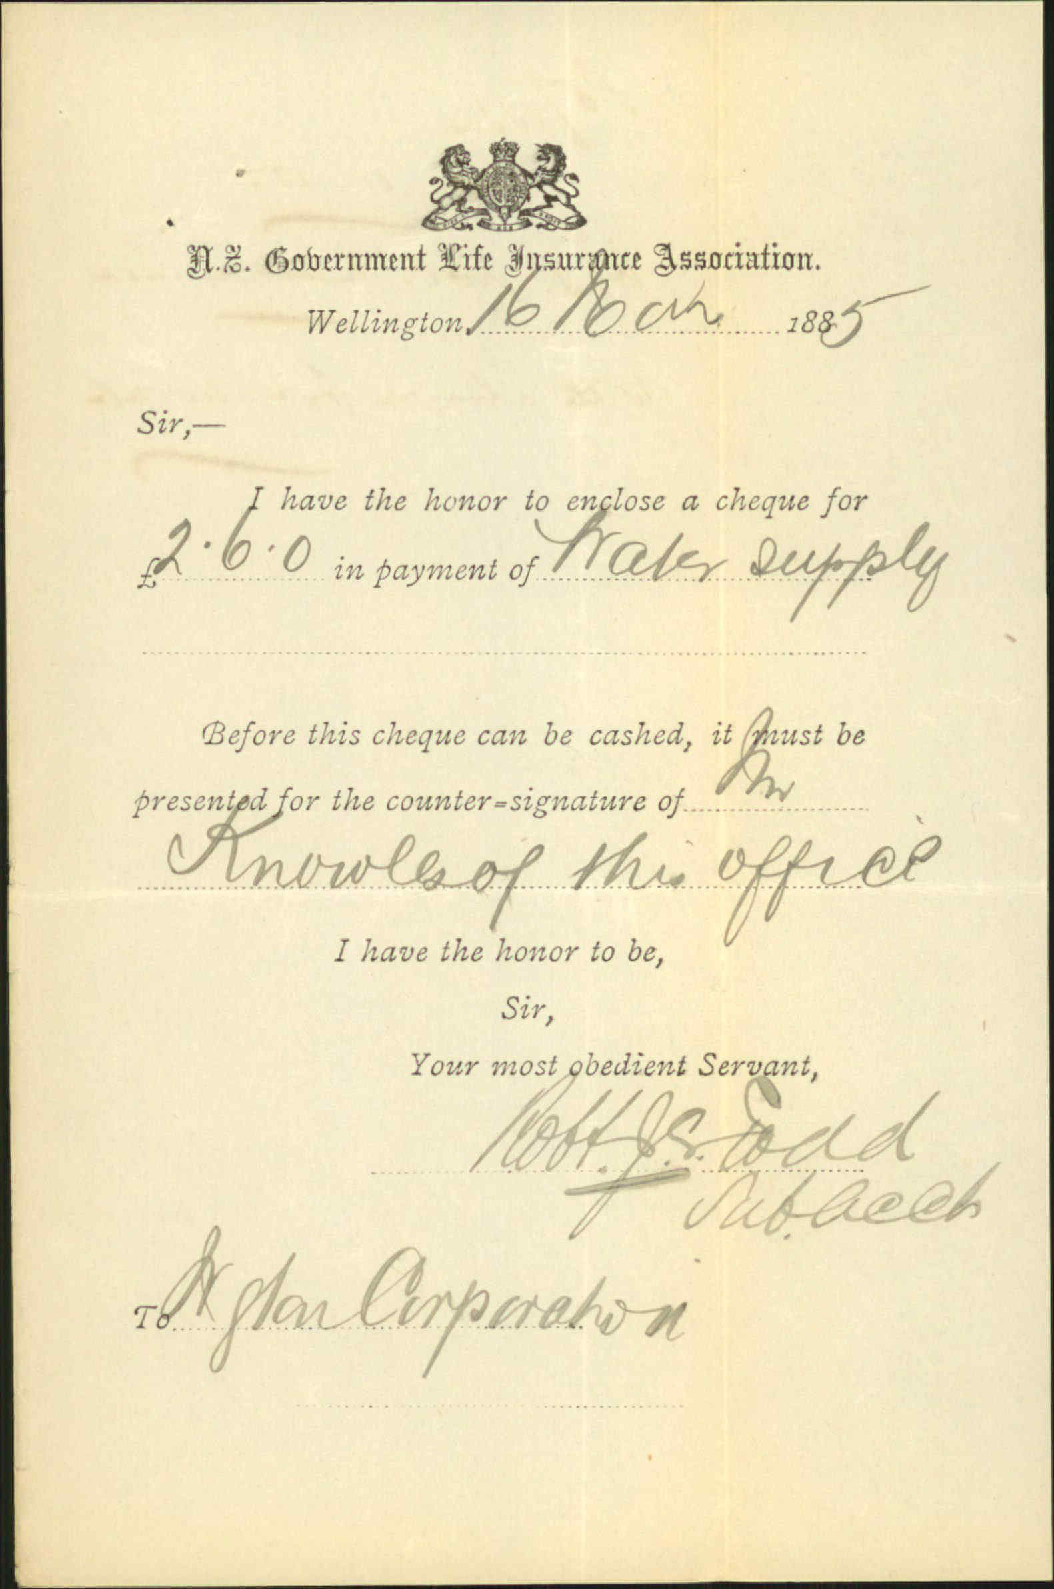 N.Z. Government Life Insurance Association.
Wellington, 16 1885
Sir,—
I have the honor to enclose a cheque for
£2.6.0 in payment of Water supply
Before this cheque can be cashed, it must be
presented for the counter=signature of Mr
Knowles of this office
I have the honor to be,
Sir,
Your most obedient Servant,
Robt. J. S. Todd
Sub. Acct
To Wgton Corporation